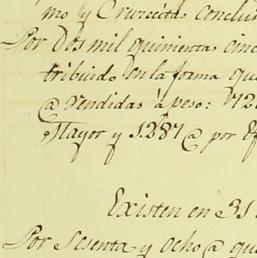 mo y Cruzecitas conclui
Por Dos mil quinientas cinc
tribuido en la forma que
@ vendidas á peso: 72
Mayor y 1.287 @ por
Existen en 31
Por Sesenta y ocho @ qu